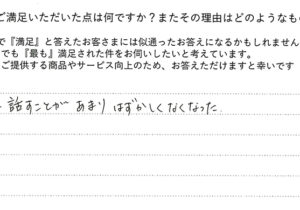 ご満足いただいた点は何ですか？またその理由はどのようなも
で『満足』と答えたお客さまには似通ったお答えになるかもしれません
でも『最も』満足された件をお伺いしたいと考えています。
ご提供する商品やサービス向上のため、お答えいただけますと幸いです
話すことが あまり はずかしくなくなった.